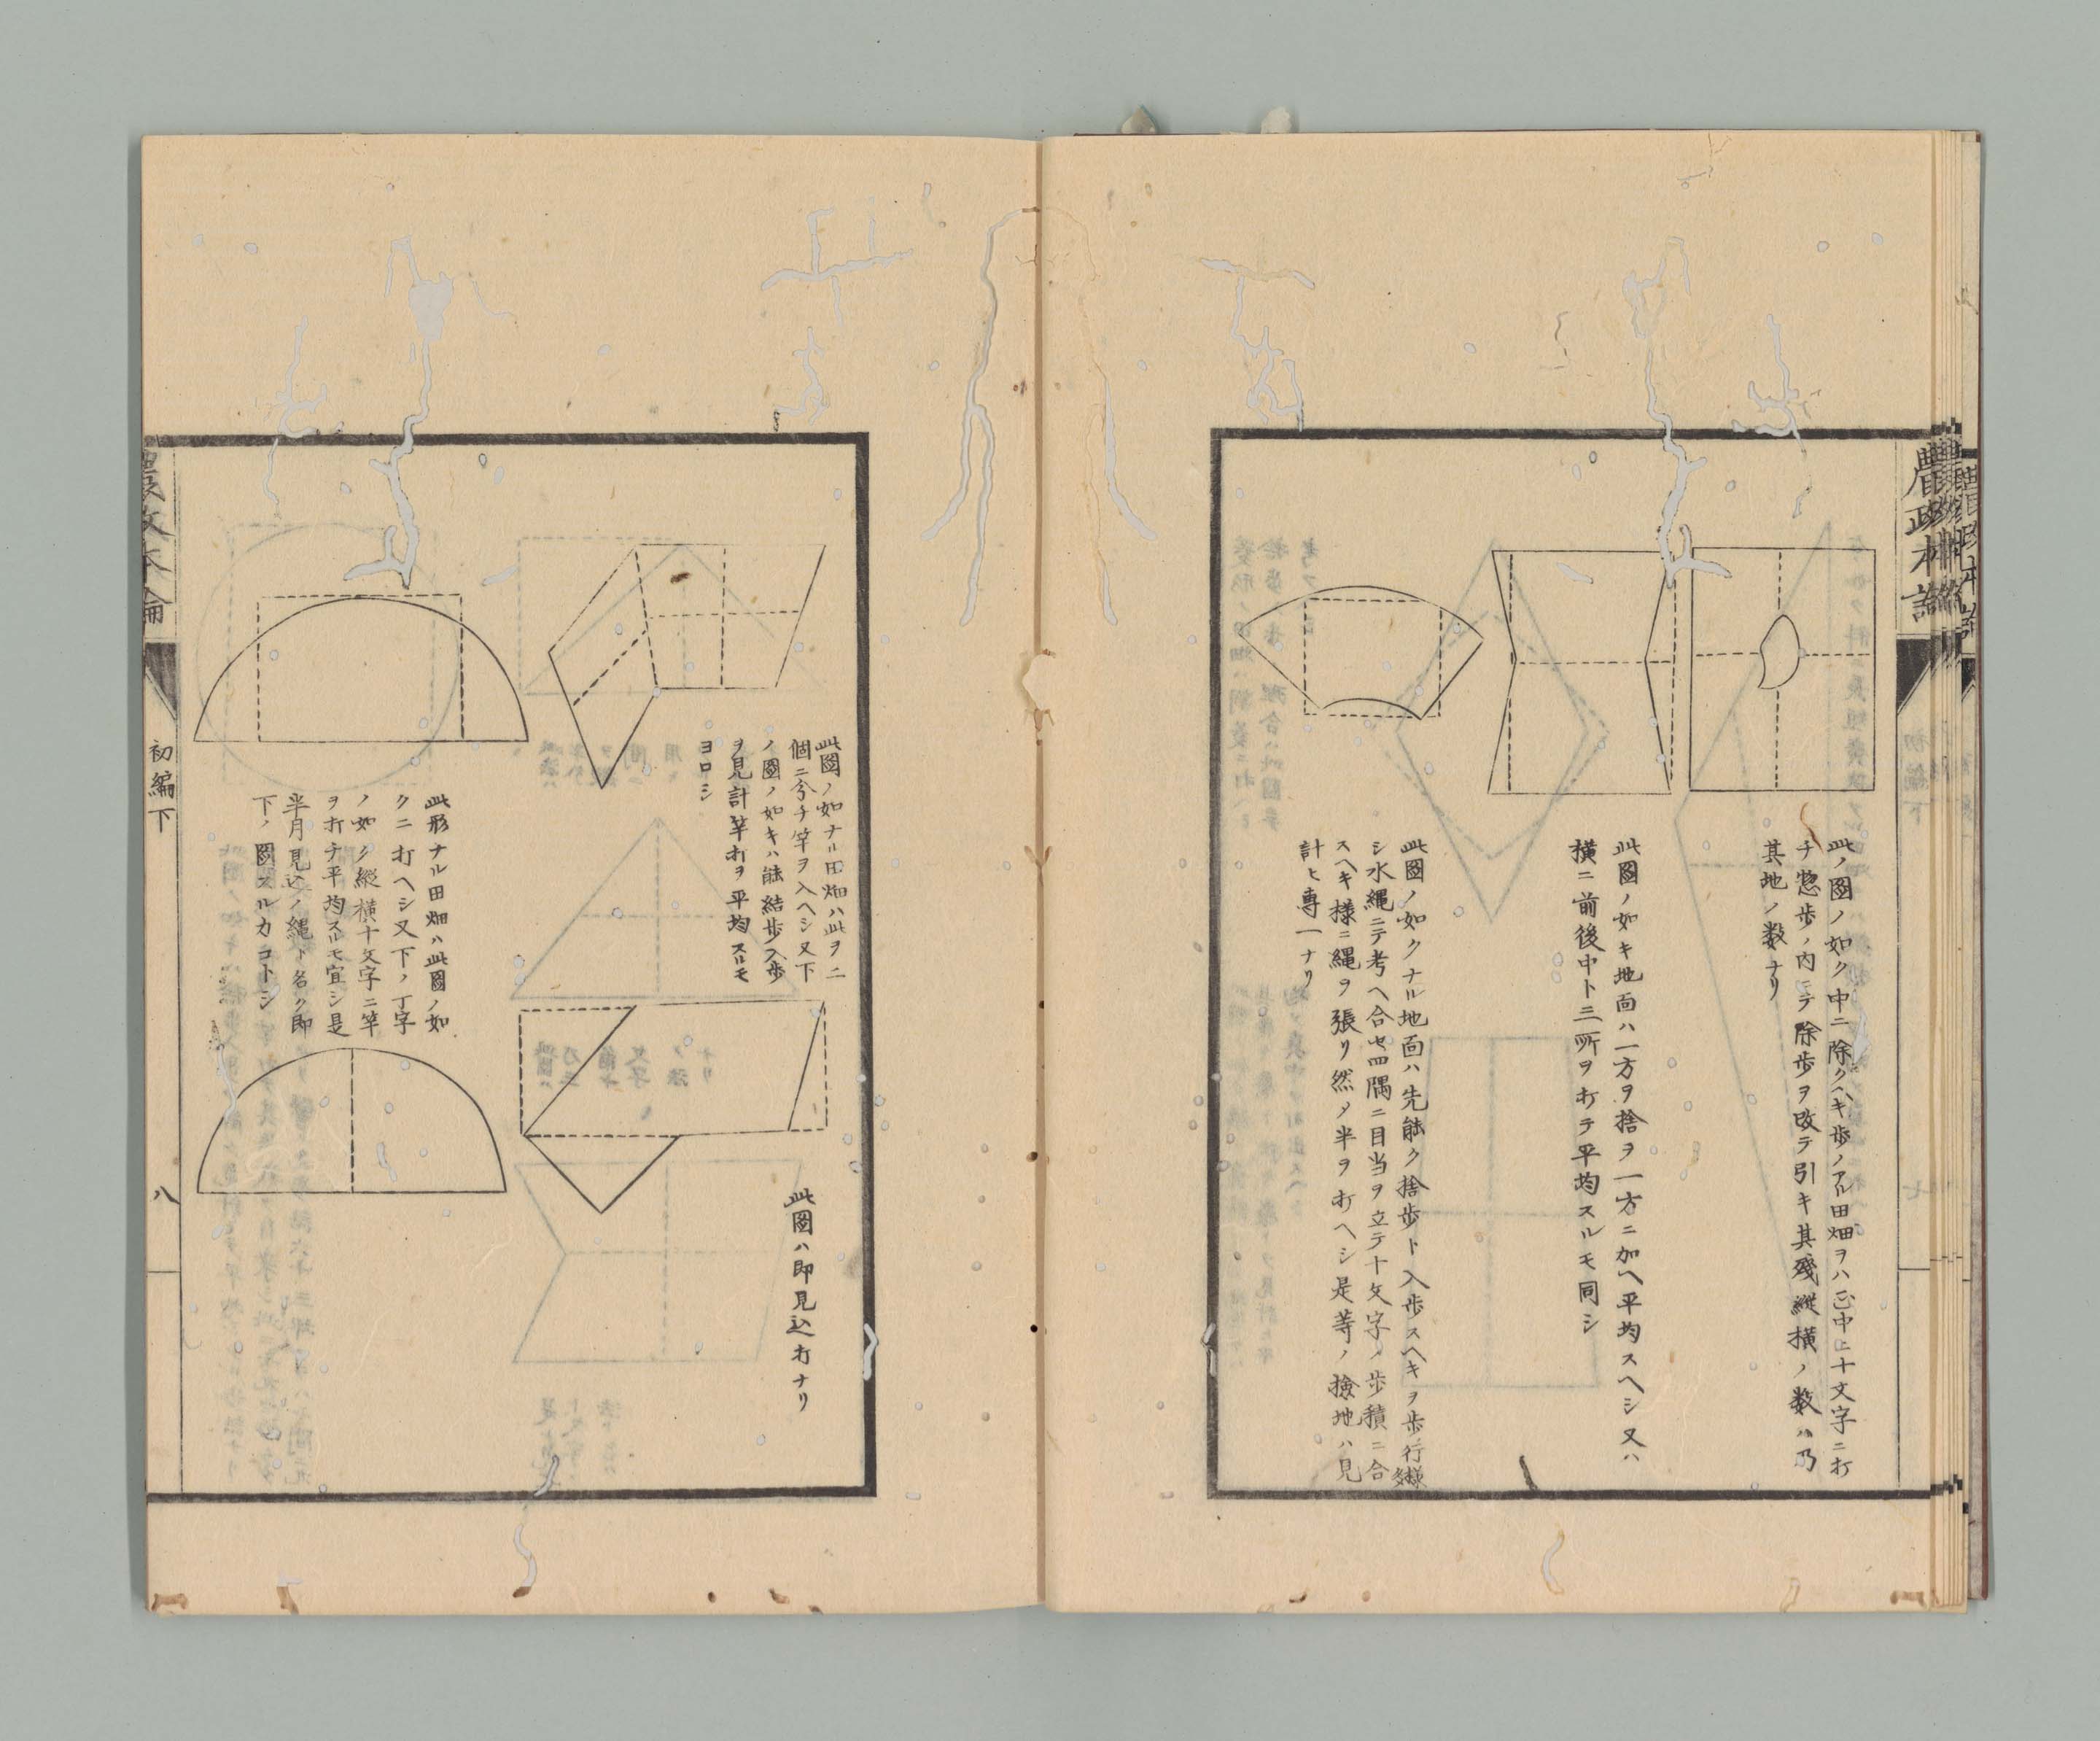 農政本論
初編下
此ノ圖ノ如ク中ニ除クヘキ歩ノアル田畑ヲハ正中ニ十文字ニ打
チ惣歩ノ内ニテ除歩ヲ改テ引キ其殘縱横ノ数ハ乃
其地ノ数ナリ
此圖ノ如キ地面ハ一方ヲ捨ヲ一方ニ加ヘ平均スヘシ又ハ
横ニ前後中ト三所ヲ打テ平均スルモ同シ
此圖ノ如クナル地面ハ先能ク捨歩ト入歩スヘキヲ歩行様
シ水縄ニテ考ヘ合セ四隅ニ目当ヲ立テ十文字ノ歩積ニ合
スヘキ様ニ縄ヲ張リ然メ半ヲ打ヘシ是等ノ撿地ハ見
計ヒ專一ナリ
此圖ノ如ナル田畑ハ此ヲ二
個ニ分チ竿ヲ入ヘシ又下
ノ圖ノ如キハ能結歩入歩
ヲ見計竿打ヲ平均スルモ
ヨロシ
此圖ハ即見込打ナリ
此形ナル田畑ハ此圖ノ如
クニ打ヘシ又下ノ丁字
ノ如ク縱横十文字ニ竿
ヲ打チ平均スルモ宜シ是
半月見込ノ縄ト名ク即
下ノ圖スルカコトシ
農政本論
初編下
八